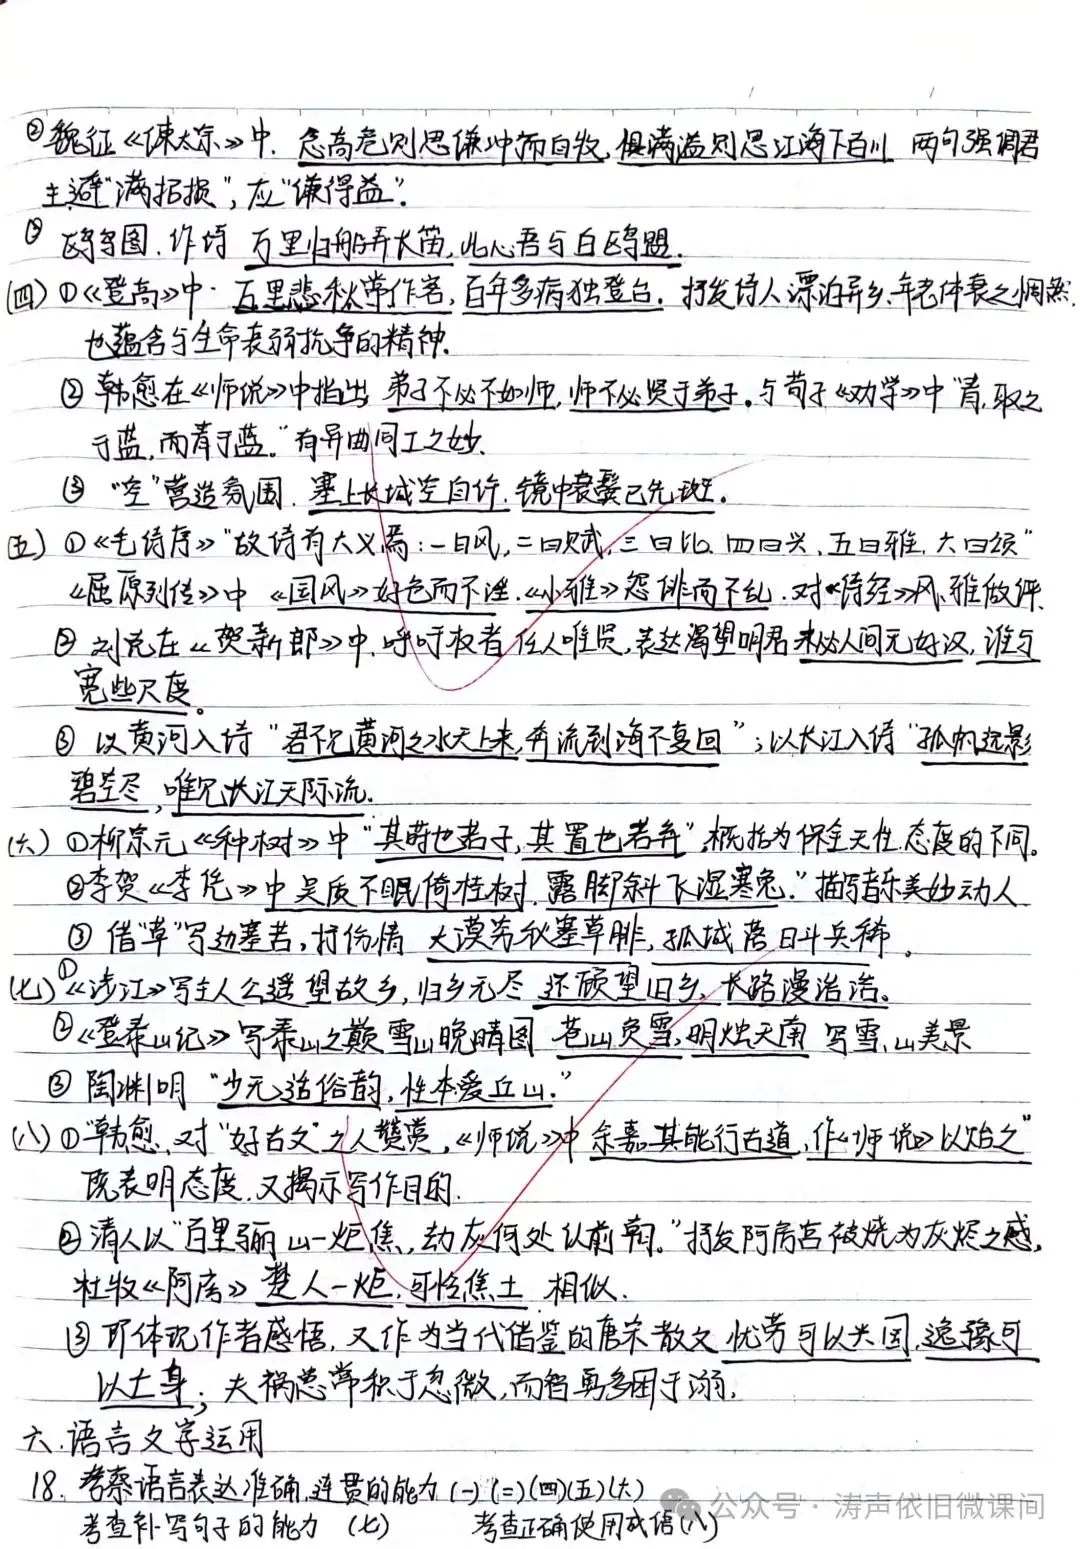 ②魏征《谏太宗》中,念高危则思谦冲而自牧,惧满溢则思江海下百川 两句强调君
主避"满招损",应"谦得益".
③ 鸥鸟图.作诗 万里归船弄长笛,此心吾与白鸥盟.
(四)①《登高》中·万里悲秋常作客,百年多病独登台.抒发诗人漂泊异乡、年老体衰之惆怅.
也蕴含与生命衰弱抗争的精神.
② 韩愈在《师说》中指出 弟子不必不如师,师不必贤于弟子。与荀子《劝学》中"青,取之
于蓝,而青于蓝。"有异曲同工之妙.
③ "空"营造氛围.塞上长城空自许.镜中衰鬓已先斑。
(五)①《毛诗序》"故诗有六义焉:一曰风,二曰赋,三曰比.四曰兴,五曰雅.六曰颂"
《屈原列传》中 《国风》好色而不淫.《小雅》怨诽而不乱.对《诗经》风、雅做评.
② 刘克在《贺新郎》中,呼吁权者 任人唯贤,表达渴望明君 未必人间无好汉,谁与
宽些尺度。
③ 以黄河入诗"君不见黄河之水天上来,奔流到海不复回";以长江入诗"孤帆远影
碧空尽,唯见长江天际流.
(六)①柳宗元《种树》中"其莳也若子,其置也若弃",概括为保全天性.态度的不同.
②李贺《李凭》中吴质不眠倚桂树.露脚斜飞湿寒兔."描写音乐美妙动人
③ 借"草"写边塞苦,抒伤情 大漠穷秋塞草腓,孤城落日斗兵稀。
(七)①《涉江》写主人公遥望故乡,归乡无尽 还顾望旧乡,长路漫浩浩。
②《登泰山记》写泰山之巅雪山晚晴图 苍山负雪,明烛天南 写雪,山美景
③ 陶渊明 "少无适俗韵,性本爱丘山."
(八)①"韩愈、对"好古文"之人赞赏,《师说》中 余嘉其能行古道,作《师说》以贻之"
既表明态度,又揭示写作目的.
②清人以"百里骊山一炬焦,劫灰何处认前朝。"抒发阿房宫被烧为灰烬之感,
杜牧《阿房》楚人一炬,可怜焦土 相似.
③ 即体现作者感悟,又作为当代借鉴的唐宋散文 忧劳可以兴国,逸豫可
以亡身;夫祸患常积于忽微,而智勇多困于溺.
六.语言文字运用
18. 考察语言表达准确,连贯的能力(一)(二)(四)(五)(六)
考查补写句子的能力 (七) 考查正确使用成语(八)
公众号·涛声依旧微课间